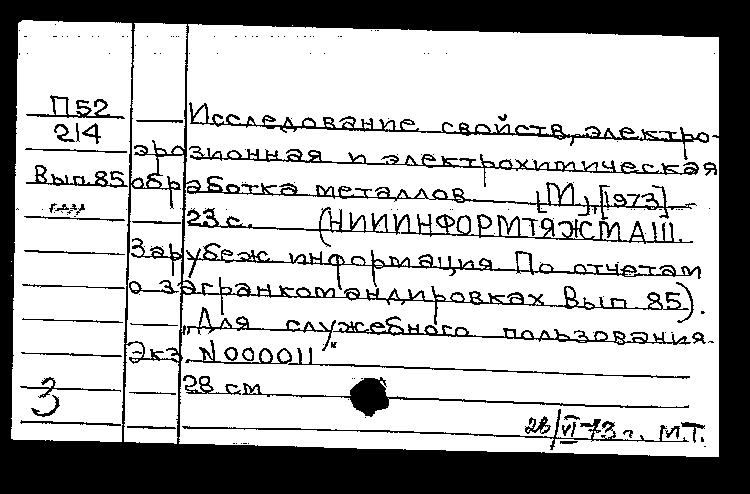 П52
2/4
Вып.85
Исследование свойств, электро-
эрозионная и электрохимическая
обработка металлов [М],[1973]
23 с. (НИИИНФОРМТЯЖМАШ.
Зарубеж информация По отчетам
о загранкомандировках Вып 85).
„Для служебного пользования.
Экз. N000011"
28 см.
3
28/VI-73 г. М.Т.